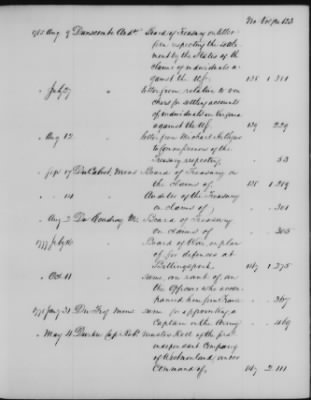 No Vol Pa 123
1785 Aug 9 Dunscomb And<sup>w</sup> Board of Treasury on letter
from respecting the settle-
ment by the States of the
claims of individuals a-
gainst the US. 138 1 381
" July 27 " letter from relative to vou
chers for settling accounts
of individuals in Virginia
against the US. 139 279
" Aug 12 letter from Michael
to Commissioners of the
Treasury respecting . 53
" 17 Mons Board of Treasury on
the claims of, 138 1 289
" " 14 " Auditor of the Treasury
on claims of, . 301
" Aug 2 Du Coudray Board of Treasury
on claims of . 305
1777 July 16 " Board of War on plan
of for defences at
Billingsport. 147 1 275
" Oct 11 " same, on rank of, on
the officers who accom-
panied him from France . 367
Jany 31 Mons same for appointing a
Captain in the Army . 469
" May 4 Capt Rob<sup>t</sup> muster Roll of the
independent Company
of Westmorland, under
command of, 147 2 111